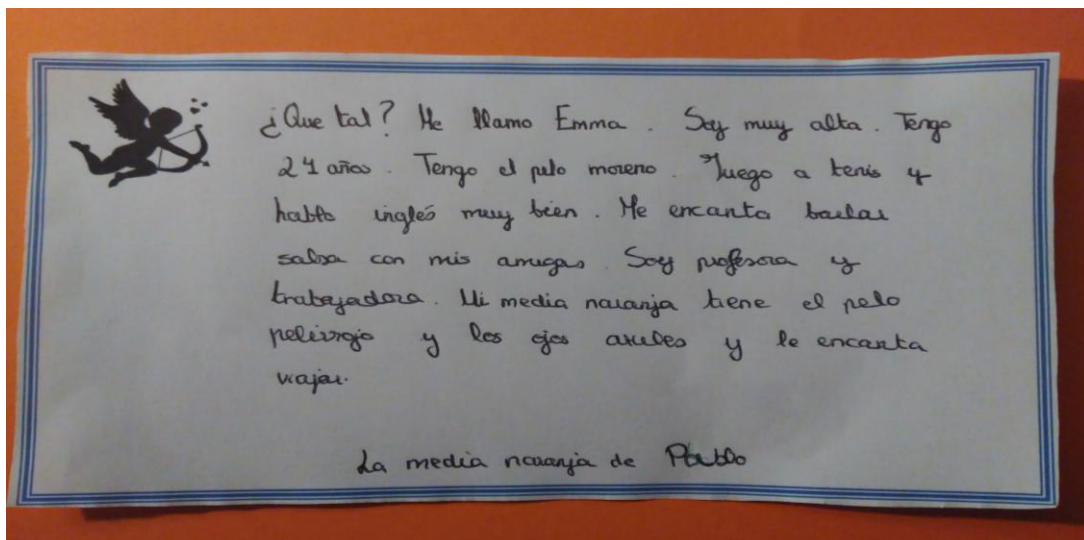 ¿Que tal? Me llamo Emma. Soy muy alta. Tengo
21 años. Tengo el pelo moreno. Juego a tenis y
hablo inglés muy bien. Me encanta bailar
salsa con mis amigas. Soy profesora y
trabajadora. Mi media naranja tiene el pelo
pelirrojo y los ojos azules y le encanta
viajar.
La media naranja de Pablo